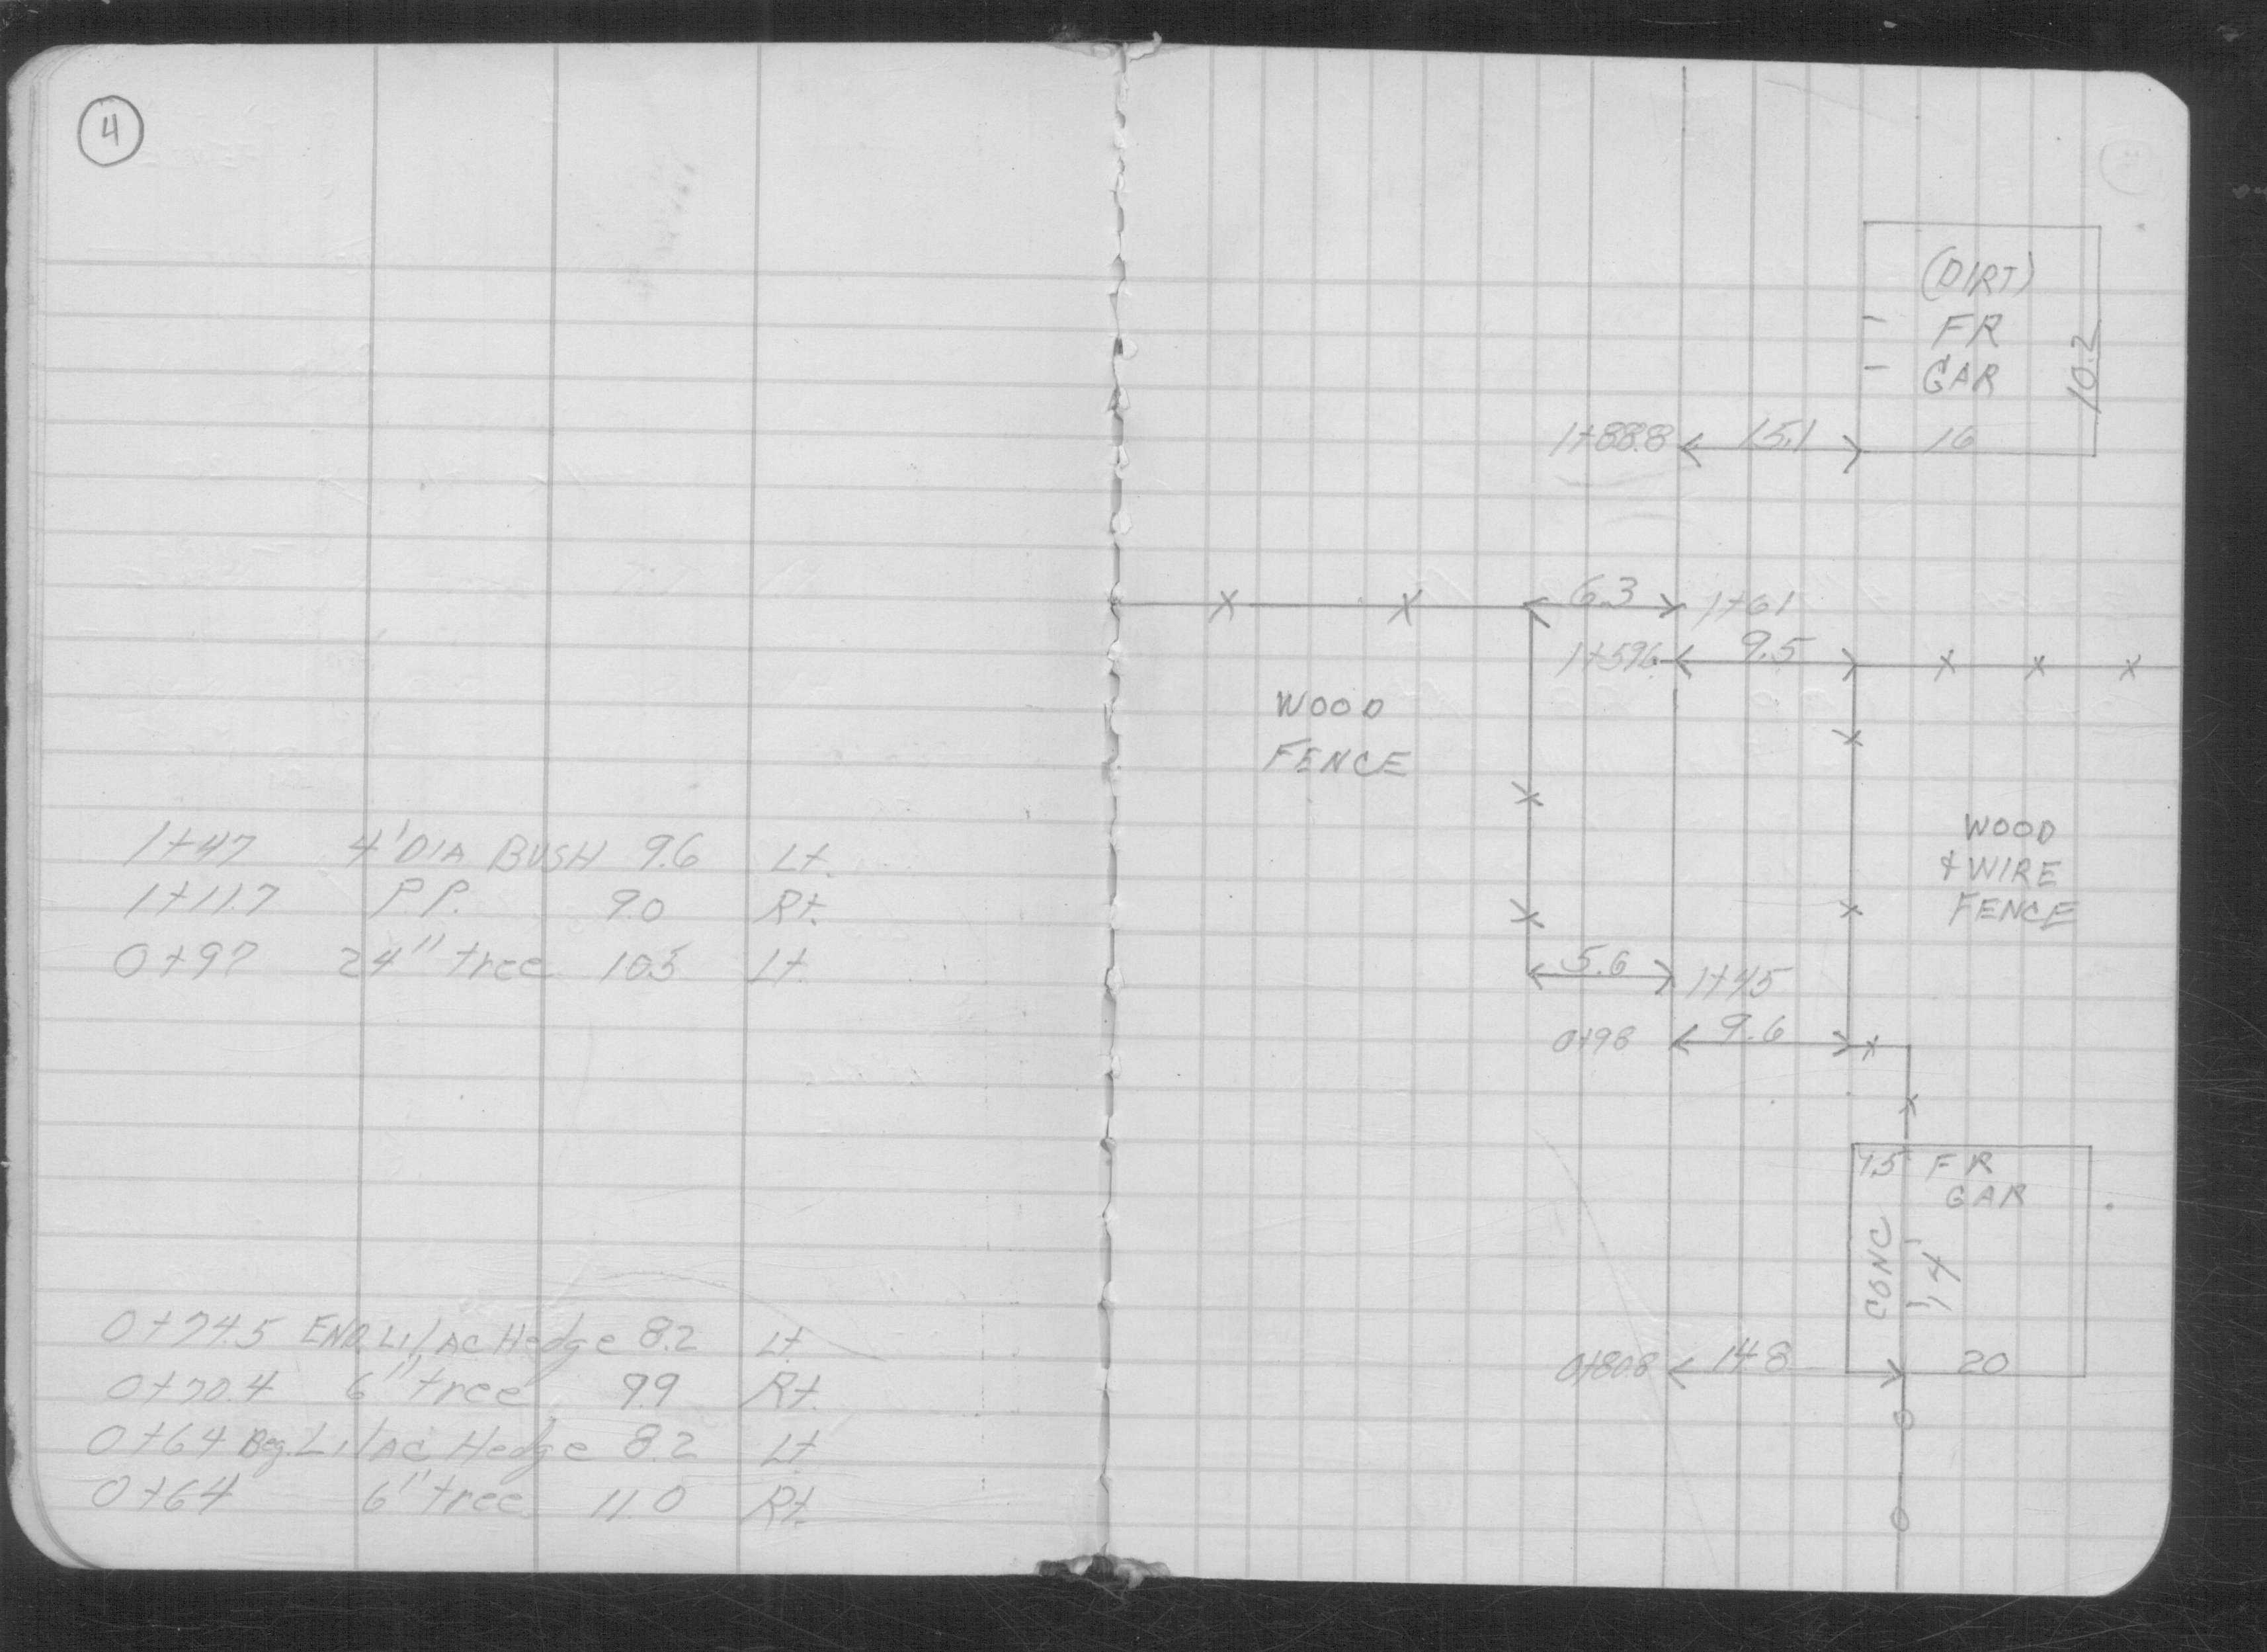 4
1+47 4' DIA BUSH 9.6 Lt.
1+11.7 P.P. 9.0 Rt.
0+97 24" tree 10.5 Lt
0+74.5 END. LilAC Hedge 8.2 Lt.
0+70.4 6" tree 9.9 Rt.
0+64 Beg. LilAC Hedge 8.2 Lt
0+64 6" tree 11.0 Rt.
(DIRT)
FR
GAR
10.2
1+88.8 15.1 16
6.3 1+61
1+59.6 9.5
WOOD
FENCE
WOOD
& WIRE
FENCE
5.6 1+45
0+98 9.6
FR
GAR
CONC
14
0+80.8 14.8 20